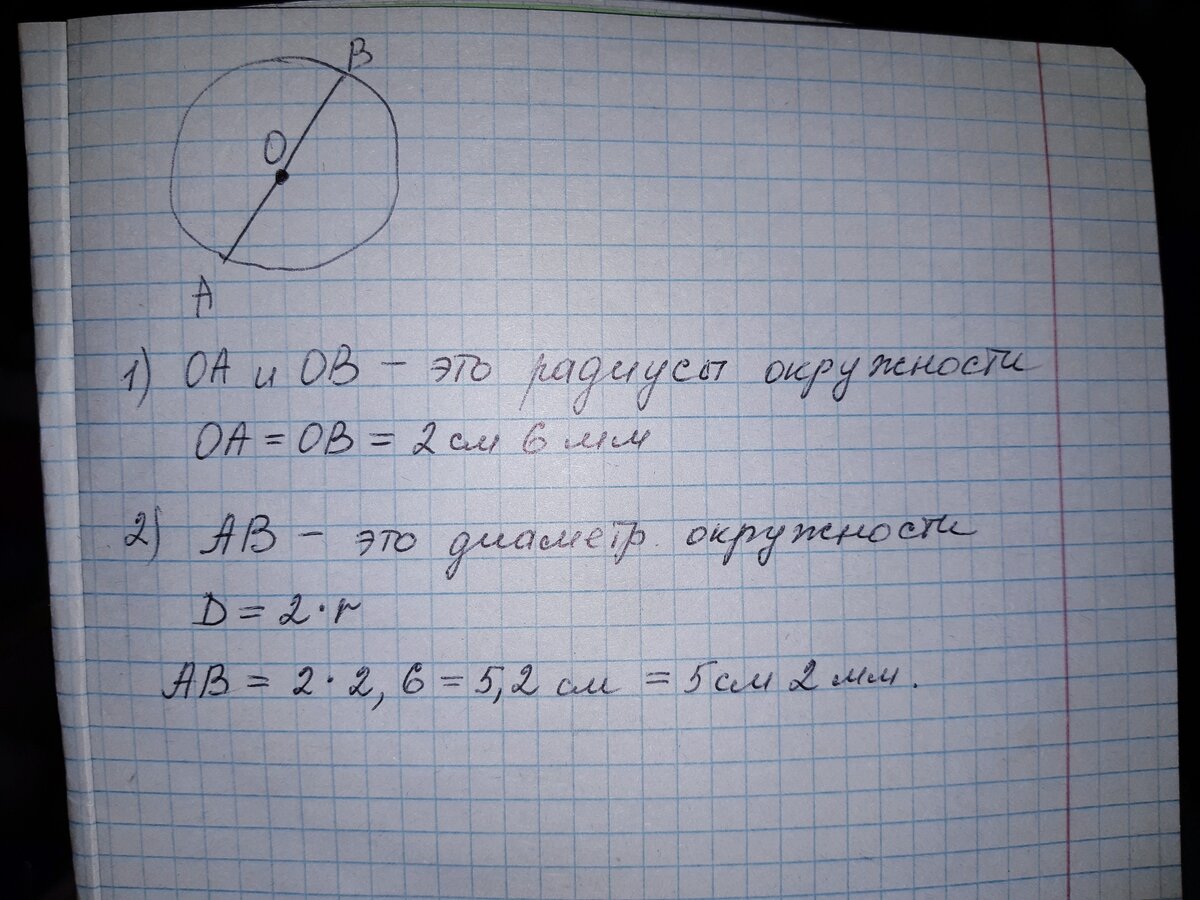 B
O
A
1) OA и OB – это радиусы окружности
OA = OB = 2 см 6 мм
2) AB – это диаметр окружности
D = 2 · r
AB = 2 · 2,6 = 5,2 см = 5 см 2 мм.